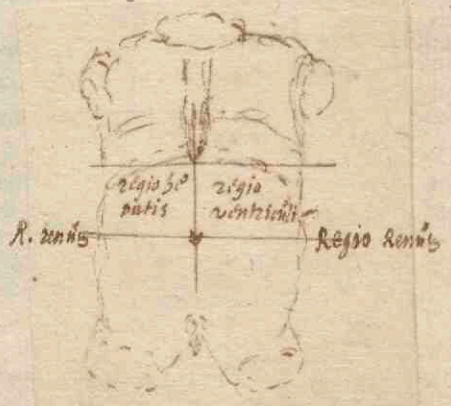 regio he
patis
regio
ventriculi
R. renũ
Regio Renũ